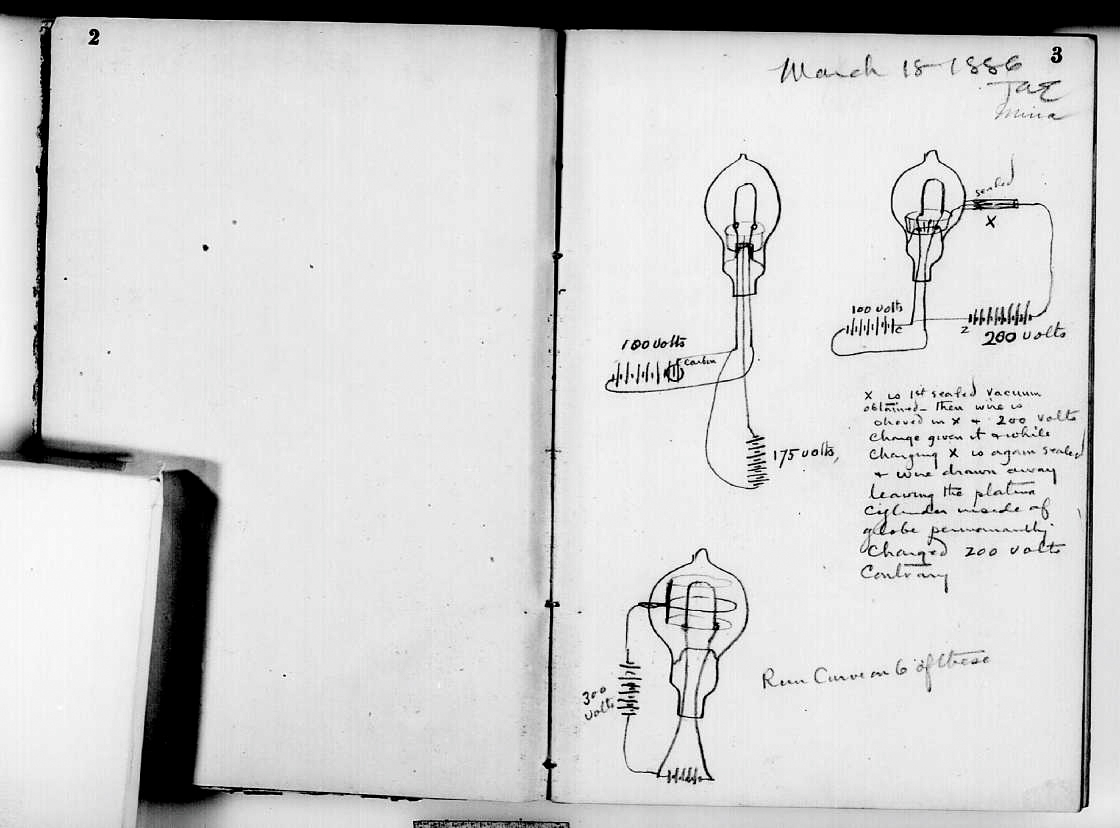 2
3
March 18 1886
TAE
Mina
sealed
X
100 volts
C
Z
200 volts
100 volts
carbon
175 volts,
X is 1st sealed vacuum
obtained - then wire is
shoved in X & 200 volts
charge given it & while
charging X is again sealed
& wire drawn away
leaving the platina
cylinder inside of
globe permanently
Charged 200 volts
Contrary
300
volts
Run Curve on 6 of these